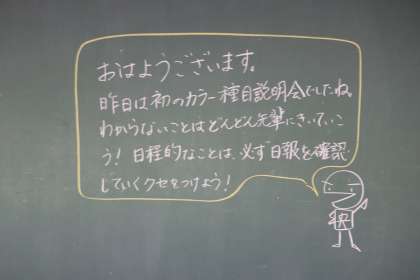 おはようございます。
昨日は初のカラー種目説明会でしたね。
わからないことはどんどん先輩にきいていこ
う！日程的なことは、必ず日報を確認
していくクセをつけよう！